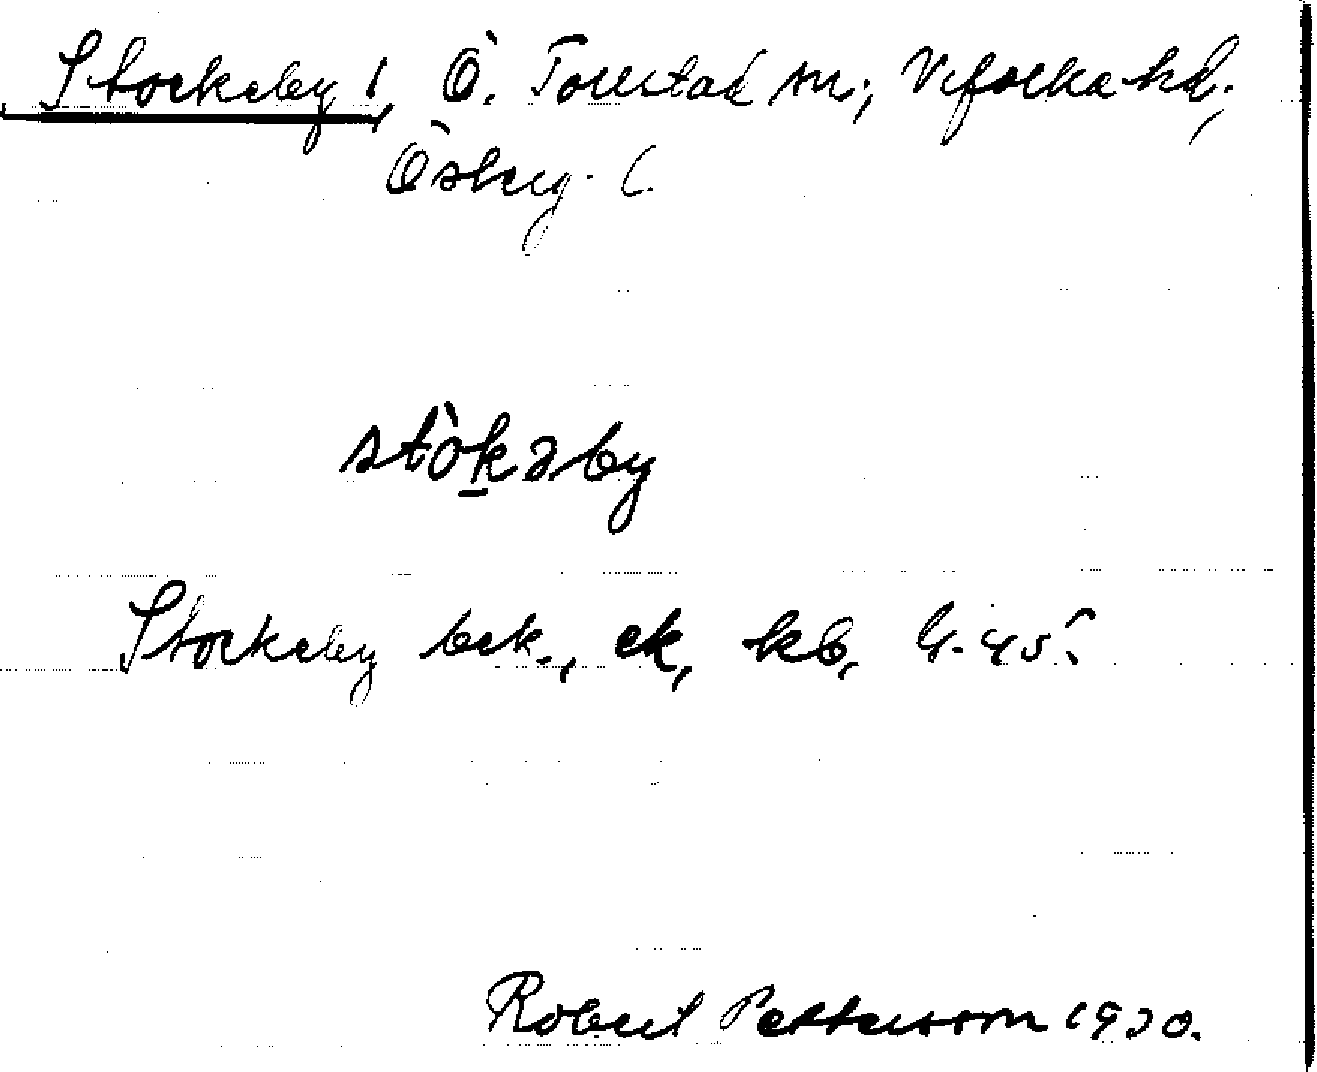 Stockeby 1, Ö. Tollstad sn., Vifolka hd,
Österg. l.
stòkəby
Stockeby bek., ek, kb, G-45.
Robert Pettersson 1930.